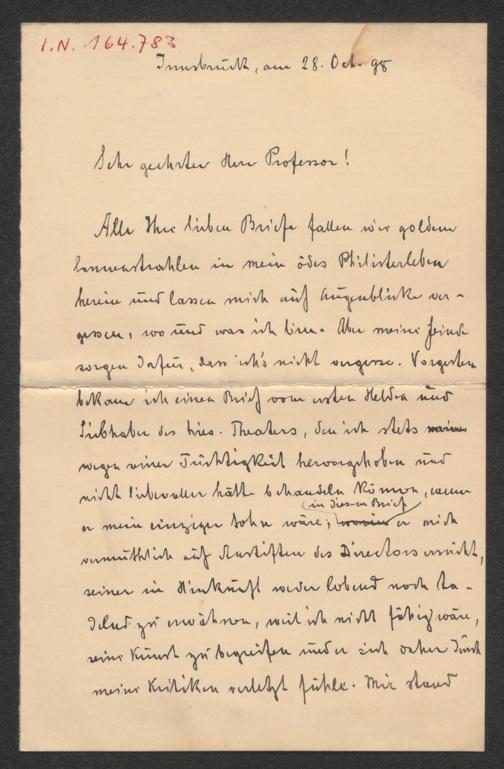 I.N. 164.783
Innsbruck, am 28. Oct. 98
Sehr geehrter Herr Professor!
Alle Ihre lieben Briefe fallen wie goldene
Sonnenstrahlen in mein ödes Philisterleben
herein und lassen mich auf Augenblicke ver-
gessen, wo und was ich bin. Aber meine Feinde
sorgen dafür, dass ich's nicht vergesse. Vorgestern
bekam ich einen Brief vom ersten Helden und
Liebhaber des hies. Theaters, den ich stets
wegen seiner Tüchtigkeit hervorgehoben und
nicht liebevoller hätte behandeln können, wenn
er mein einziger Sohn wäre; in diesem Brief er mich
vermuthlich auf Anstiften des Directors ersucht,
seiner in Hinkunft weder lobend noch ta-
delnd zu erwähnen, weil ich nicht fähig wäre,
seine Kunst zu begreifen und er sich daher durch
meine Kritiken verletzt fühle. Mir stand